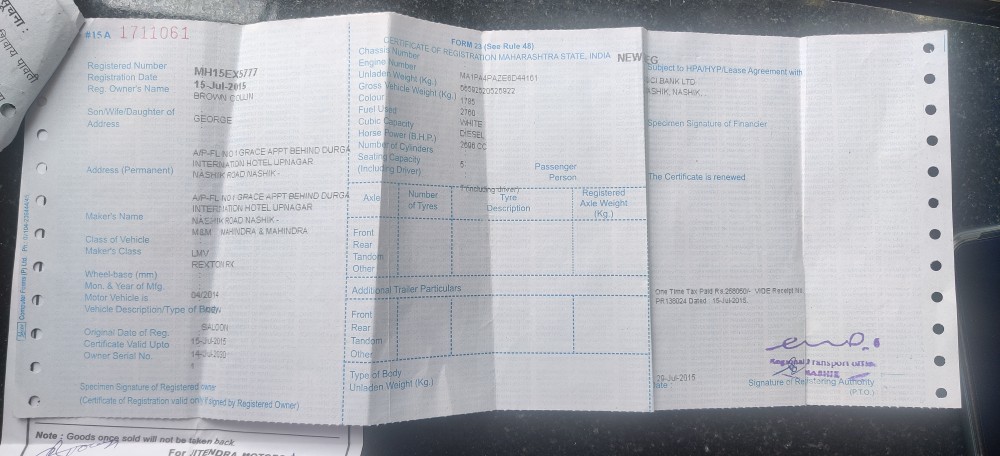 सूचना :
#15A 1711061
FORM 23 (See Rule 48)
CERTIFICATE OF REGISTRATION MAHARASHTRA STATE, INDIA
NEW REG
Registered Number MH15EX5777
Registration Date 15-Jul-2015
Reg. Owner's Name BROWN COLIN
Son/Wife/Daughter of GEORGE
Address
A/P-FL NO 1 GRACE APPT BEHIND DURGA
INTERNATION HOTEL UPNAGAR
NASHIK ROAD NASHIK -
Address (Permanent)
A/P-FL NO 1 GRACE APPT BEHIND DURGA
INTERNATION HOTEL UPNAGAR
NASHIK ROAD NASHIK -
Maker's Name
M&M MAHINDRA & MAHINDRA
Class of Vehicle LMV
Maker's Class REXTON RX
Wheel-base (mm)
Mon. & Year of Mfg. 04/2014
Motor Vehicle is
Vehicle Description/Type of Body
SALOON
Original Date of Reg. 15-Jul-2015
Certificate Valid Upto
Owner Serial No. 1
Specimen Signature of Registered owner
(Certificate of Registration valid only if signed by Registered Owner)
Chassis Number
Engine Number
MA1PA4PAZE6D44161
Unladen Weight (Kg.)
Gross Vehicle Weight (Kg.)
Colour
2760
Fuel Used WHITE
Cubic Capacity DIESEL
Horse Power (B.H.P.) 2696 CC
Number of Cylinders
Seating Capacity 5
(Including Driver)
(including driver)
Passenger
Person
Axle
Number of Tyres
Tyre Description
Registered Axle Weight (Kg.)
Front
Rear
Tandom
Other
Additional Trailer Particulars
Front
Rear
Tandom
Other
Type of Body
Unladen Weight (Kg.)
Subject to HPA/HYP/Lease Agreement with
BANK LTD
NASHIK.
Specimen Signature of Financier
The Certificate is renewed
One Time Tax Paid Rs.258060/- VIDE Receipt No
PR138024 Dated 15-Jul-2015.
Regional Transport Office
NASHIK
29-Jul-2015
Date :
Signature of Registering Authority
(P.T.O.)
Note : Goods once sold will not be taken back.
For JITENDRA MOTORS